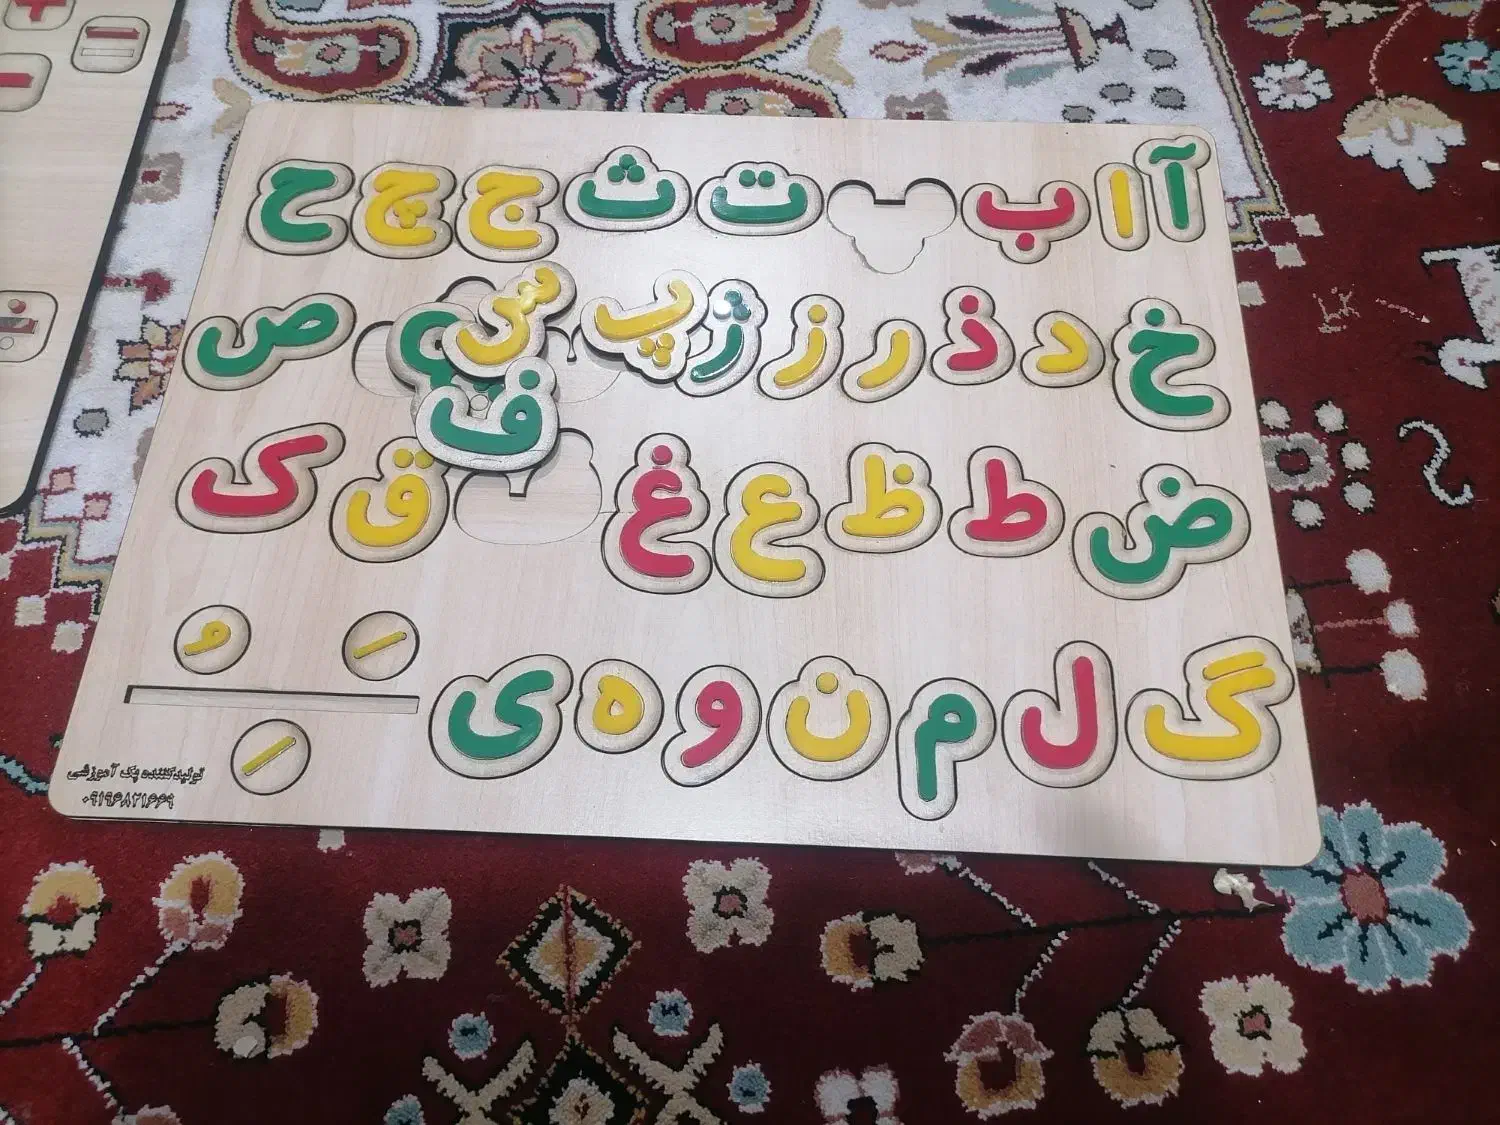 آ ا ب ت ث ج چ ح
خ د ذ ر ز ژ پ ش ص
ف
ض ط ظ ع غ ق ک
گ ل م ن و ه ی
َ ُ
ِ
تولیدکننده پک آموزشی
۰۹۱۹۶۸۲۱۶۶۹